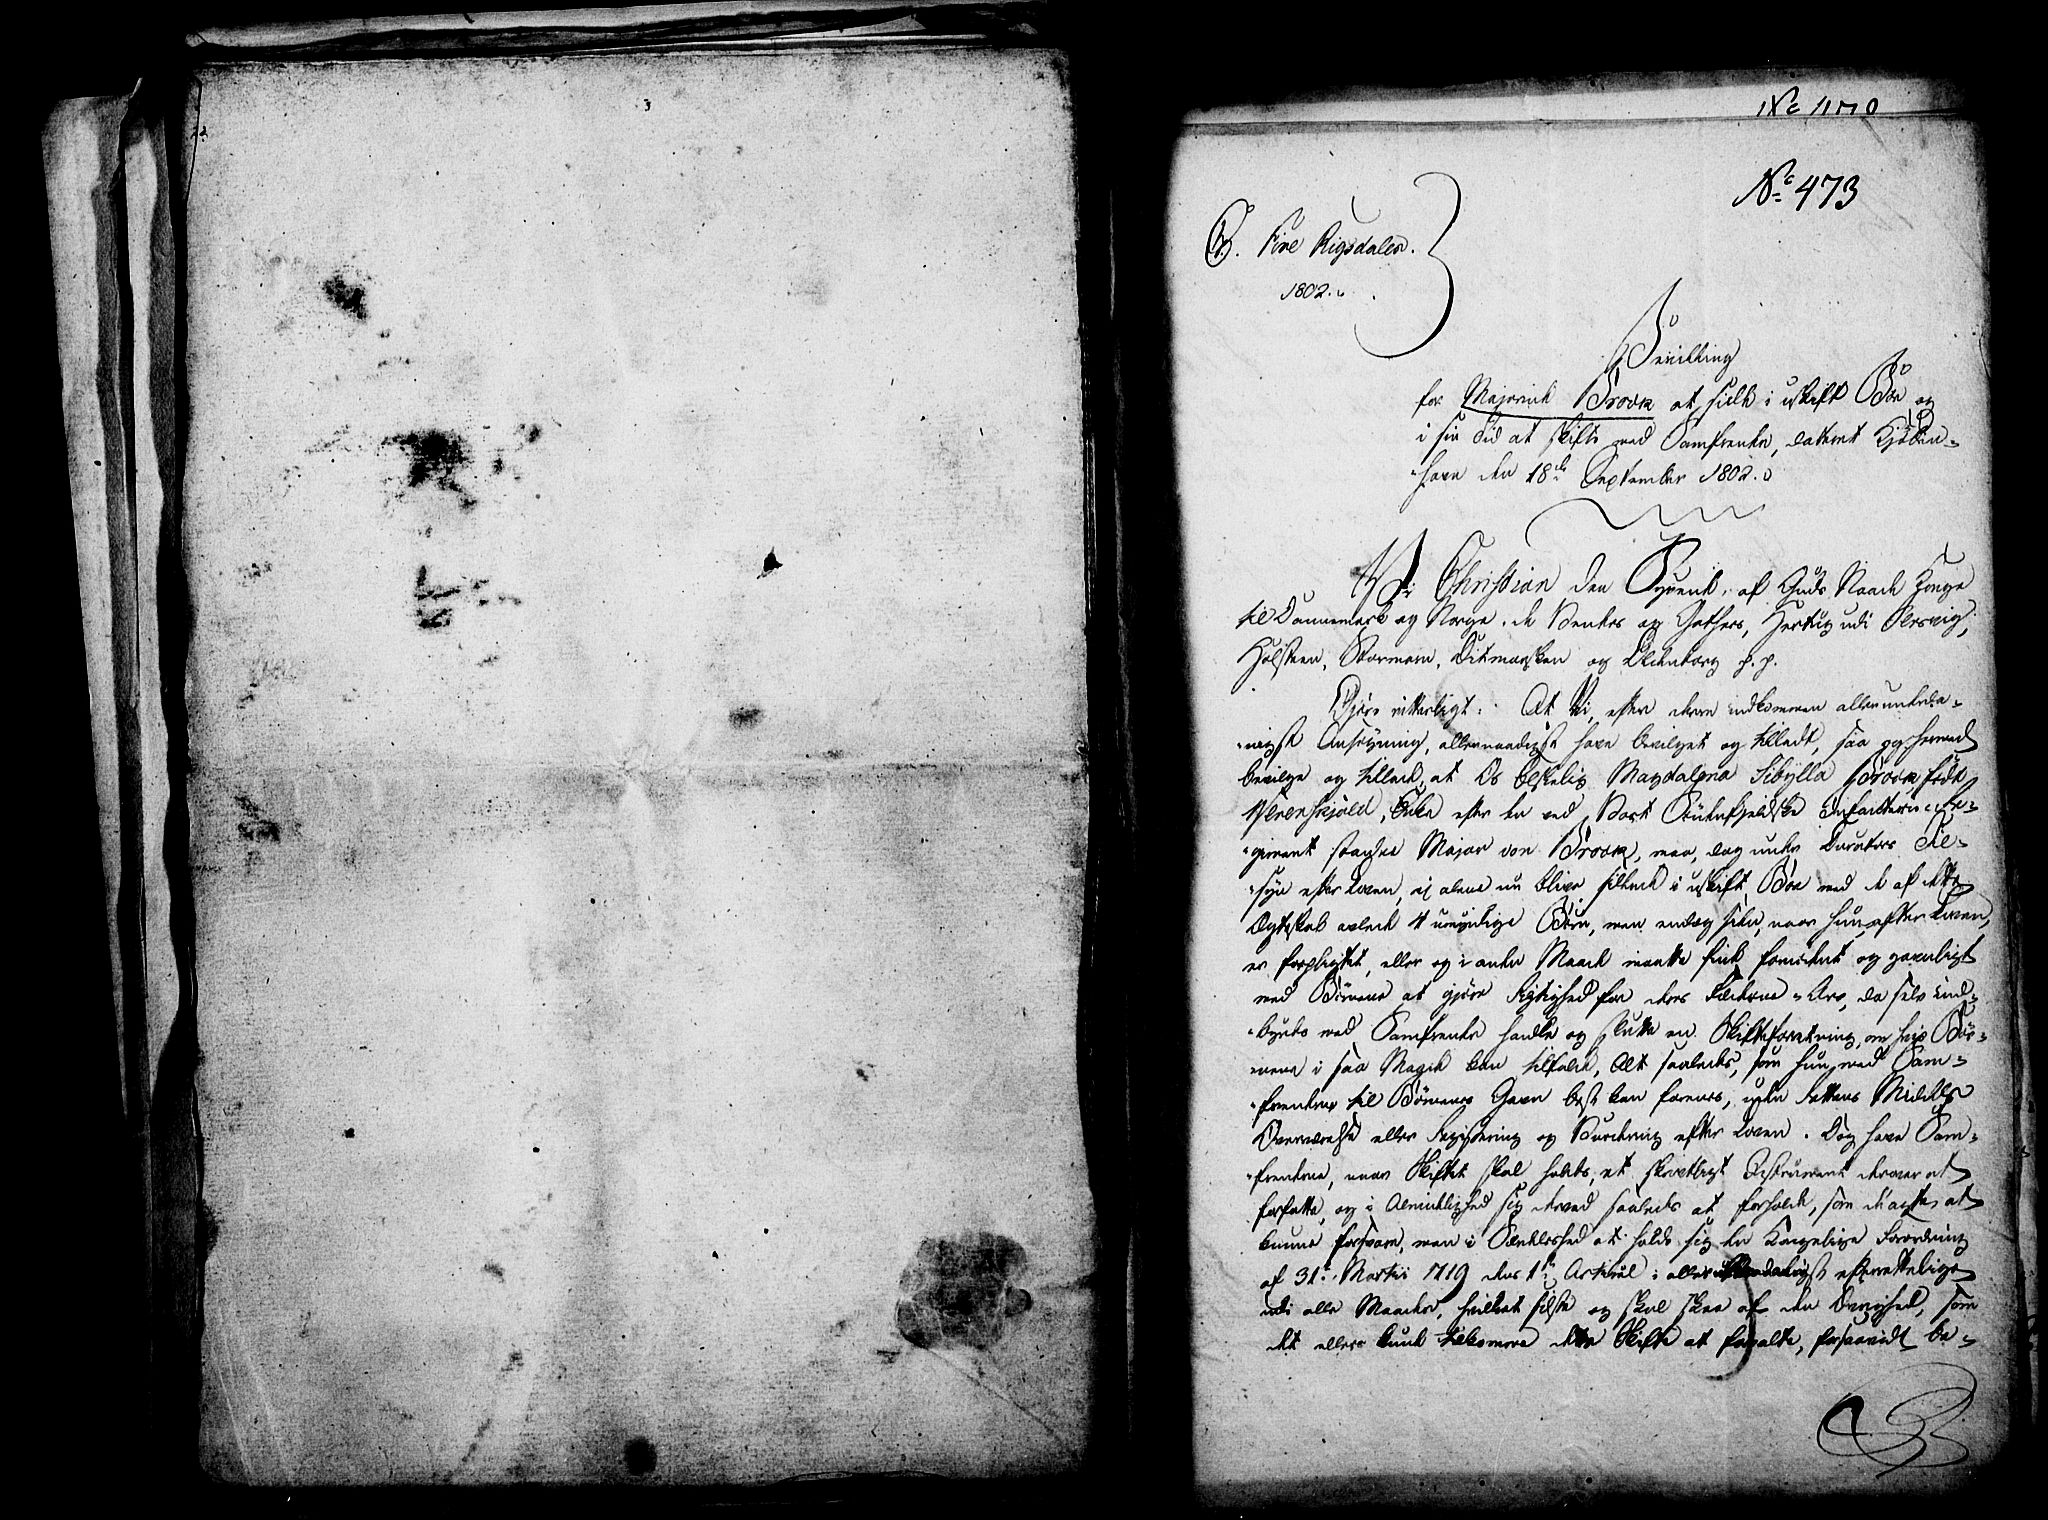 No 1170
No 473
Fire Rigsdaler.
1802.
Bevilling
for Majorinde Brock at sidde i uskift Boe og
i sin Tid at skifte med Samfrender, dateret Kjøben-
-havn den 18de September 1802.
Vi Christian den Syvende, af Guds Naade Konge
til Dannemark og Norge, de Venders og Gothers, Hertug udi Slesvig,
Holsteen, Stormarn, Ditmarsken og Oldenborg p. p.
Gjøre vitterligt: At Vi, efter derom indkommen allerunderda-
-nigst Ansøgning, allernaadigst have bevilget og tilladt, saa og hermed
bevilge og tillade, at Os elskelig Magdalena Sibylla Brock, født
Werenskjold, Enke efter en ved Vort Søndenfjeldske Infanterie-Re-
-giment staaende Major von Brock, maa, dog under Curators Til-
-syn efter Loven, ej alene nu blive siddende i uskift Boe med de af dette
Ægteskab avlede 4 umyndige Børn, men endog siden, naar hun, efter Loven,
er forpligtet, eller og i anden Maade maatte finde fornødent og gavnligt
med Børnene at gjøre Rigtighed for deres Fædrene-Arv, da selv ind-
-byrdes med Samfrender handle og slutte en Skifteforretning, om hvis Bør-
-nene i saa Maade kan tilfalde, Alt saaledes, som hun med Sam-
-frenderne til Børnenes Gavn best kan forenes, uden Rettens Middels
Overværelse eller Registering og Vurdering efter Loven. Dog have Sam-
-frenderne, naar Skiftet skal holdes, et skriftligt Instrument derover at
forfatte, og i Almindelighed sig derved saaledes at forholde, som de agte at
kunne forsvare, men i Særdeleshed at holde sig den Kongelige Forordning
af 31te Martii 1719 dens 1te Artikul i allerunderdanigst efterrettelige
udi alle Maader, hvilket sidste og skal skee af den Øvrighed, som
det ellers kunde tilkomme dette Skifte at forvalte, forsaavidt be-